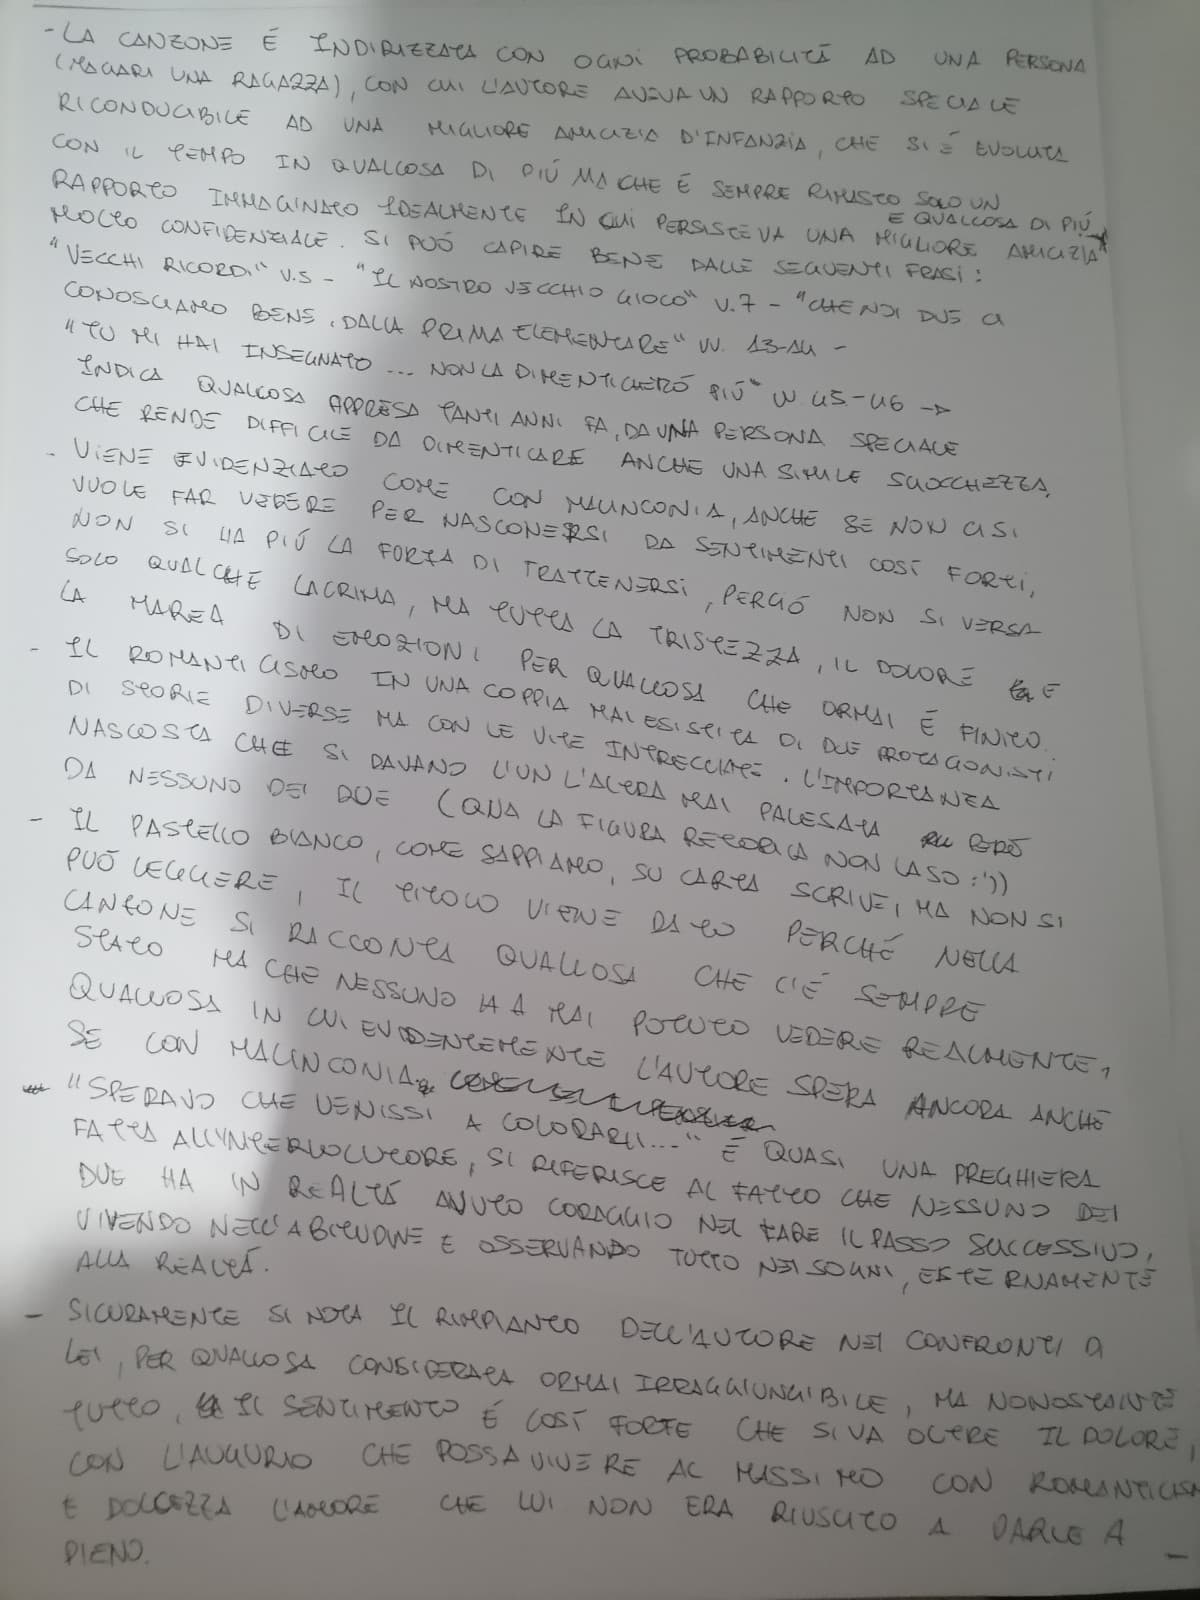 - LA CANZONE É INDIRIZZATA CON OGNI PROBABILITÁ AD UNA PERSONA
(MAGARI UNA RAGAZZA), CON CUI L'AUTORE AVEVA UN RAPPORTO SPECIALE
RICONDUCIBILE AD UNA MIGLIORE AMICIZIA D'INFANZIA, CHE SI É EVOLUTA
CON IL TEMPO IN QUALCOSA DI PIÚ MA CHE É SEMPRE RIMASTO SOLO UN
RAPPORTO IMMAGINATO IDEALMENTE IN QUI PERSISTEVA UNA MIGLIORE AMICIZIA
E QUALCOSA DI PIÚ
MOLTO CONFIDENZIALE. SI PUÓ CAPIRE BENE DALLE SEGUENTI FRASI:
"VECCHI RICORDI" V.5 - "IL NOSTRO VECCHIO GIOCO" V.7 - "CHE NOI DUE CI
CONOSCIAMO BENE, DALLA PRIMA ELEMENTARE" VV. 13-14 -
"TU MI HAI INSEGNATO ... NON LA DIMENTICHERÓ PIÚ" VV 45-46 →
INDICA QUALCOSA APPRESA TANTI ANNI FA, DA UNA PERSONA SPECIALE
CHE RENDE DIFFICILE DA DIMENTICARE ANCHE UNA SIMILE SCIOCCHEZZA.
- VIENE EVIDENZIATO COME CON MALINCONIA, ANCHE SE NON CI SI
VUOLE FAR VEDERE PER NASCONERSI DA SENTIMENTI COSÍ FORTI,
NON SI HA PIÚ LA FORZA DI TRATTENERSI, PERCIÓ NON SI VERSA
SOLO QUALCHE LACRIMA, MA TUTTA LA TRISTEZZA, IL DOLORE E
LA MAREA DI EMOZIONI PER QUALCOSA CHE ORMAI É FINITO.
- IL ROMANTICISMO IN UNA COPPIA MAI ESISTITA DI DUE PROTAGONISTI
DI STORIE DIVERSE MA CON LE VITE INTRECCIATE. L'IMPORTANZA
NASCOSTA CHE SI DAVANO L'UN L'ALTRA MAI PALESATA PERÓ
DA NESSUNO DEI DUE (QUA LA FIGURA RETORICA NON LA SO :'))
- IL PASTELLO BIANCO, COME SAPPIAMO, SU CARTA SCRIVE, MA NON SI
PUÓ LEGGERE, IL TITOLO VIENE DATO PERCHÉ NELLA
CANZONE SI RACCONTA QUALCOSA CHE C'É SEMPRE
STATO MA CHE NESSUNO HA MAI POTUTO VEDERE REALMENTE,
QUALCOSA IN CUI EVIDENTEMENTE L'AUTORE SPERA ANCORA ANCHE
SE CON MALINCONIA.
"SPERAVO CHE VENISSI A COLORARLI..." É QUASI UNA PREGHIERA
FATTA ALL'INTERLOCUTORE, SI RIFERISCE AL FATTO CHE NESSUNO DEI
DUE HA IN REALTÁ AVUTO CORAGGIO NEL FARE IL PASSO SUCCESSIVO,
VIVENDO NELL'ABITUDINE E OSSERVANDO TUTTO NEI SOGNI, ESTERNAMENTE
ALLA REALTÁ.
- SICURAMENTE SI NOTA IL RIMPIANTO DELL'AUTORE NEI CONFRONTI DI
LEI, PER QUALCOSA CONSIDERATA ORMAI IRRAGGIUNGIBILE, MA NONOSTANTE
TUTTO, IL SENTIMENTO É COSÍ FORTE CHE SI VA OLTRE IL DOLORE,
CON L'AUGURIO CHE POSSA VIVERE AL MASSIMO CON ROMANTICISM
E DOLCEZZA L'AMORE CHE LUI NON ERA RIUSCITO A DARLE A
PIENO. -